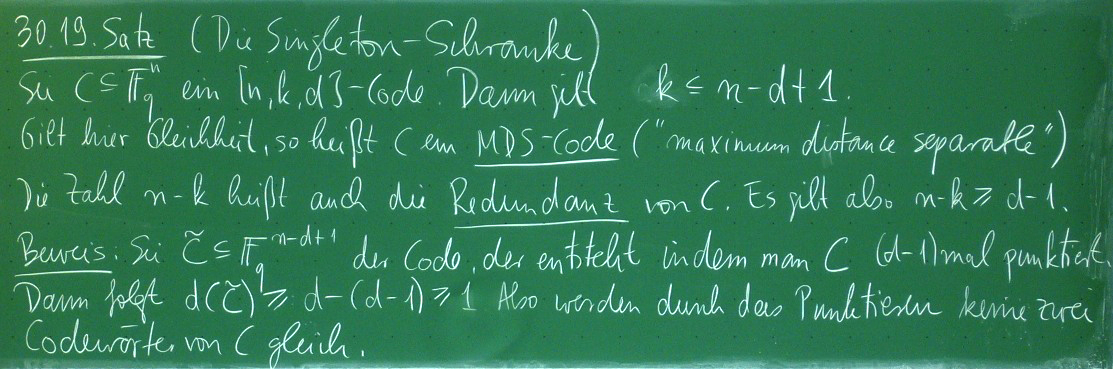 30.19. Satz (Die Singleton-Schranke)
Sei C ⊆ 𝔽_q^n ein [n,k,d]-Code. Dann gilt k ≤ n-d+1.
Gilt hier Gleichheit, so heißt C ein MDS-Code ("maximum distance separable")
Die Zahl n-k heißt auch die Redundanz von C. Es gilt also n-k ≥ d-1.
Beweis: Sei C̃ ⊆ 𝔽_q^{n-d+1} der Code, der entsteht indem man C (d-1)mal punktiert.
Dann folgt d(C̃) ≥ d-(d-1) ≥ 1 Also werden durch das Punktieren keine zwei
Codewörter von C gleich.